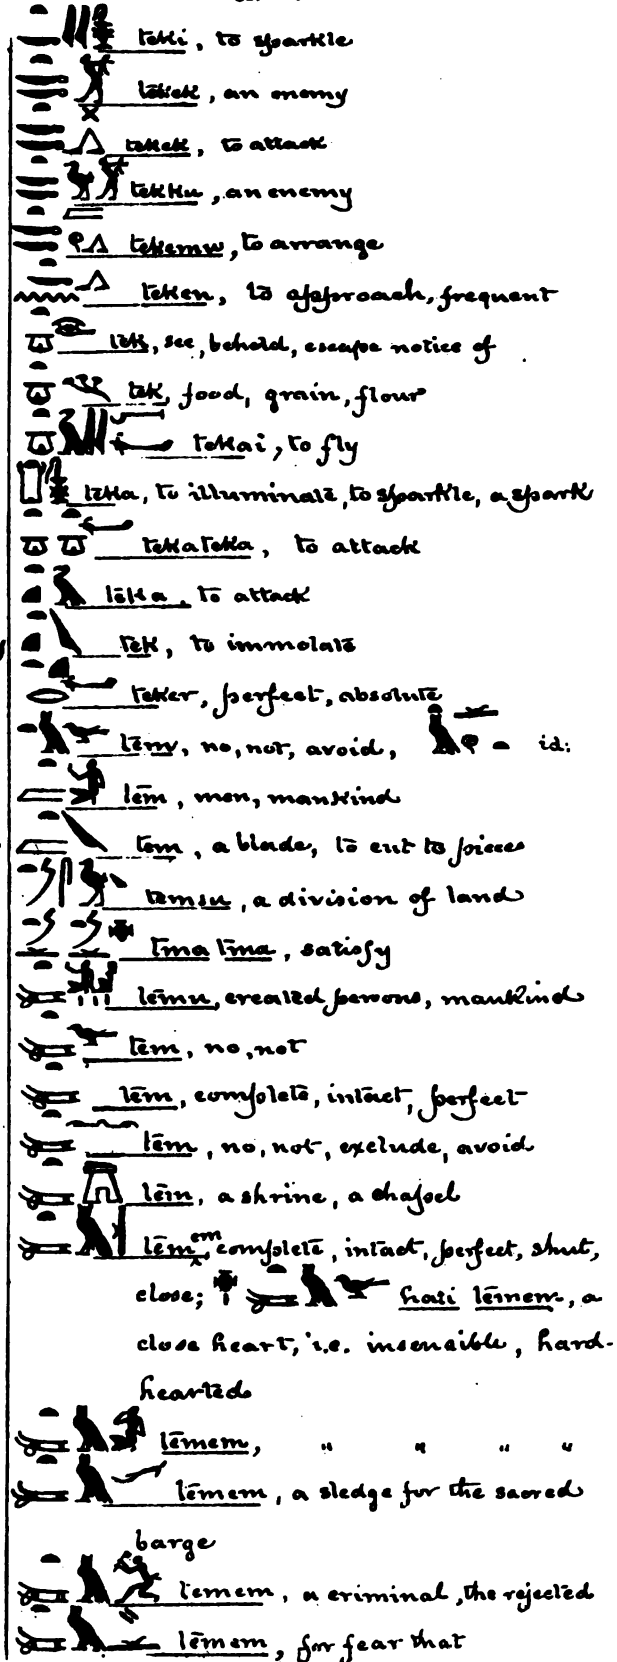 teki, to sparkle
tekek, an enemy
tekek, to attack
tekku, an enemy
tekemu, to arrange
teken, to approach, frequent
tek, see, behold, escape notice of
tek, food, grain, flour
tekai, to fly
teka, to illuminate, to sparkle, a spark
tekateka, to attack
teka, to attack
tek, to immolate
teker, perfect, absolute
tem, no, not, avoid, id:
tem, men, mankind
tem, a blade, to cut to pieces
temsu, a division of land
tma tma, satisfy
temu, created persons, mankind
tem, no, not
tem, complete, intact, perfect
tem, no, not, exclude, avoid
tem, a shrine, a chapel
temem, complete, intact, perfect, shut,
close; hati temem, a
close heart, i.e. insensible, hard-
hearted
temem, " " " "
temem, a sledge for the sacred
barge
temem, a criminal, the rejected
temem, for fear that